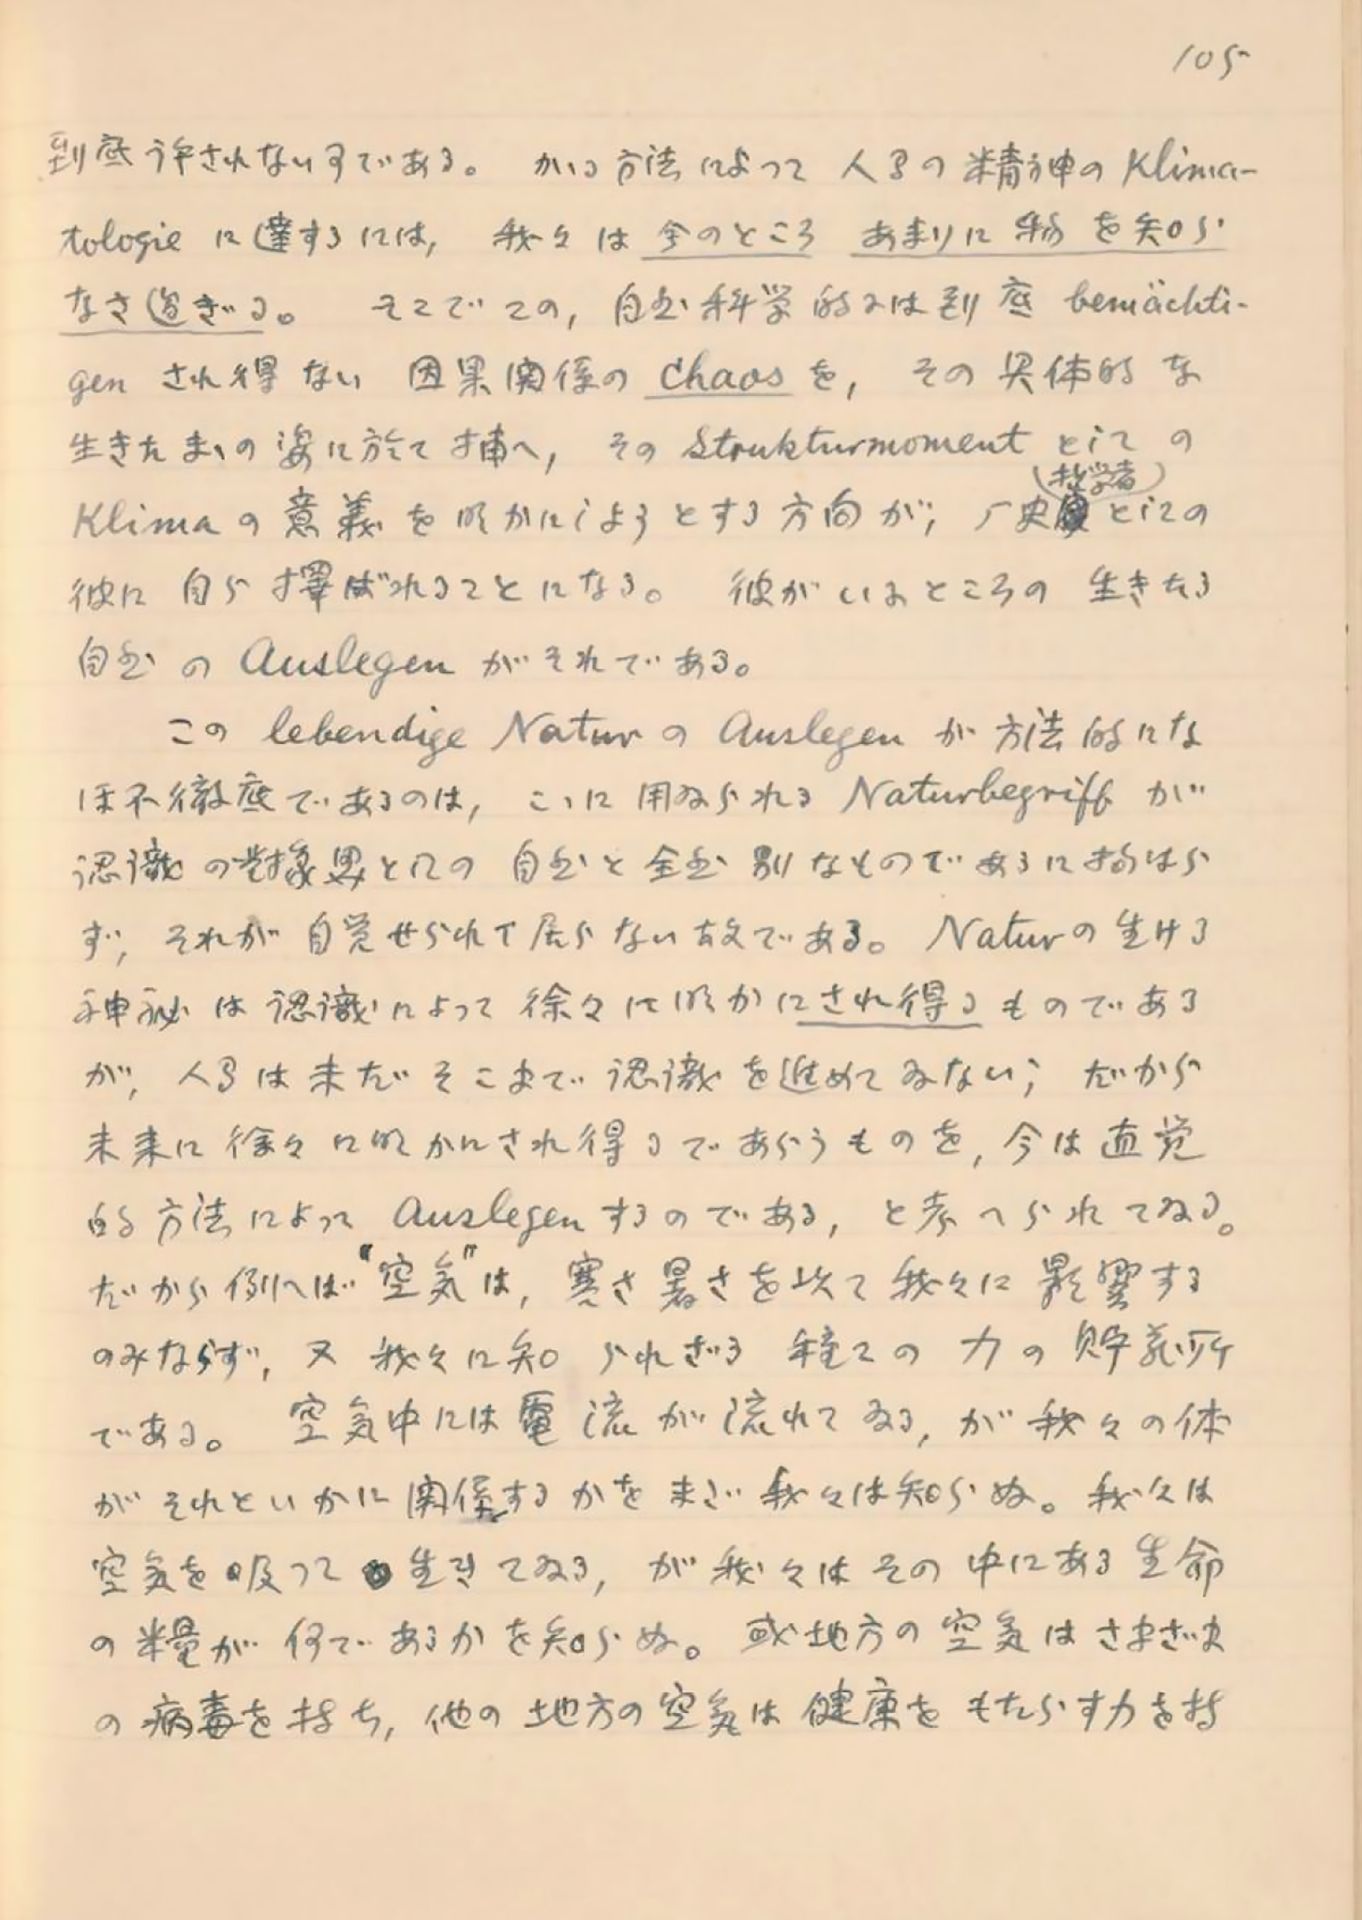 105
到底許されない事である。 かゝる方法によって 人間の 精神の Klima-
tologie に達するには, 我々は 今のところ あまりに 物を知ら
なさ過ぎる。 そこでこの, 自然科学的には到底 bemächti-
gen され得ない 因果関係の Chaos を, その具体的な
生きたまゝの姿に於て捕へ, その Strukturmoment としての
Klima の意義を明かにしようとする方向が, 歴史(哲学者)としての
彼に自ら擇ばれることになる。 彼がいふところの 生きたる
自然の Auslegen がそれである。
この lebendige Natur の Auslegen が方法的にな
ほ不徹底であるのは, こゝに用ゐられる Naturbegriff が
認識の対象界としての 自然と全然別なものであるに拘はら
ず, それが自覚せられて居らない故である。 Natur の生ける
神秘は認識によって徐々に明かにされ得るものである
が, 人間は未だそこまで認識を進めてゐない; だから
未来に徐々に明かにされ得るであらうものを, 今は直覚
的方法によって Auslegen するのである, と考へられてゐる。
だから例へば "空気" は, 寒さ暑さを以て我々に影響する
のみならず, 又我々に知られざる種々の力の貯蔵所
である。 空気中には電流が流れてゐる, が我々の体
がそれといかに関係するかをまだ我々は知らぬ。 我々は
空気を吸って生きてゐる, が我々はその中にある生命
の糧が何であるかを知らぬ。 或地方の空気はさまざま
の病毒を持ち, 他の地方の空気は健康をもたらす力を持